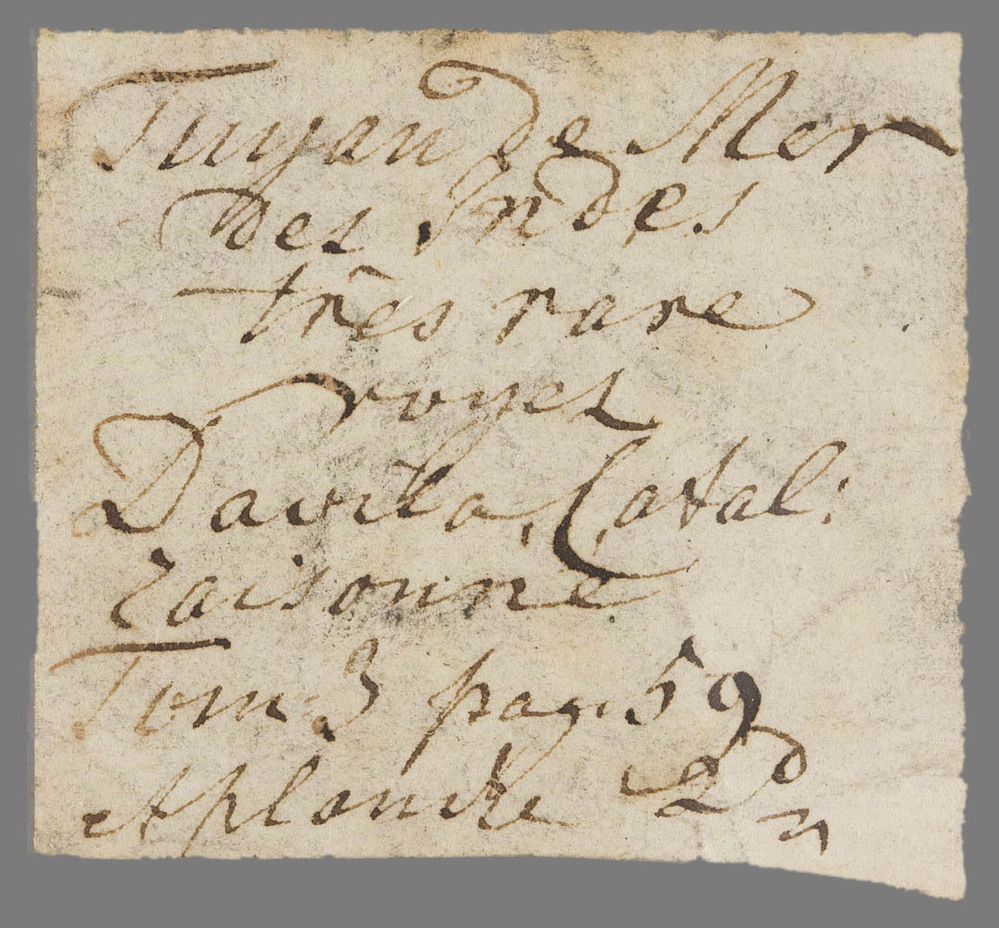 Tuyau de Mer
des Indes
très rare
voyez
Davila, Catal:
raisonné
Tom 3 pag. 59
et planche 2